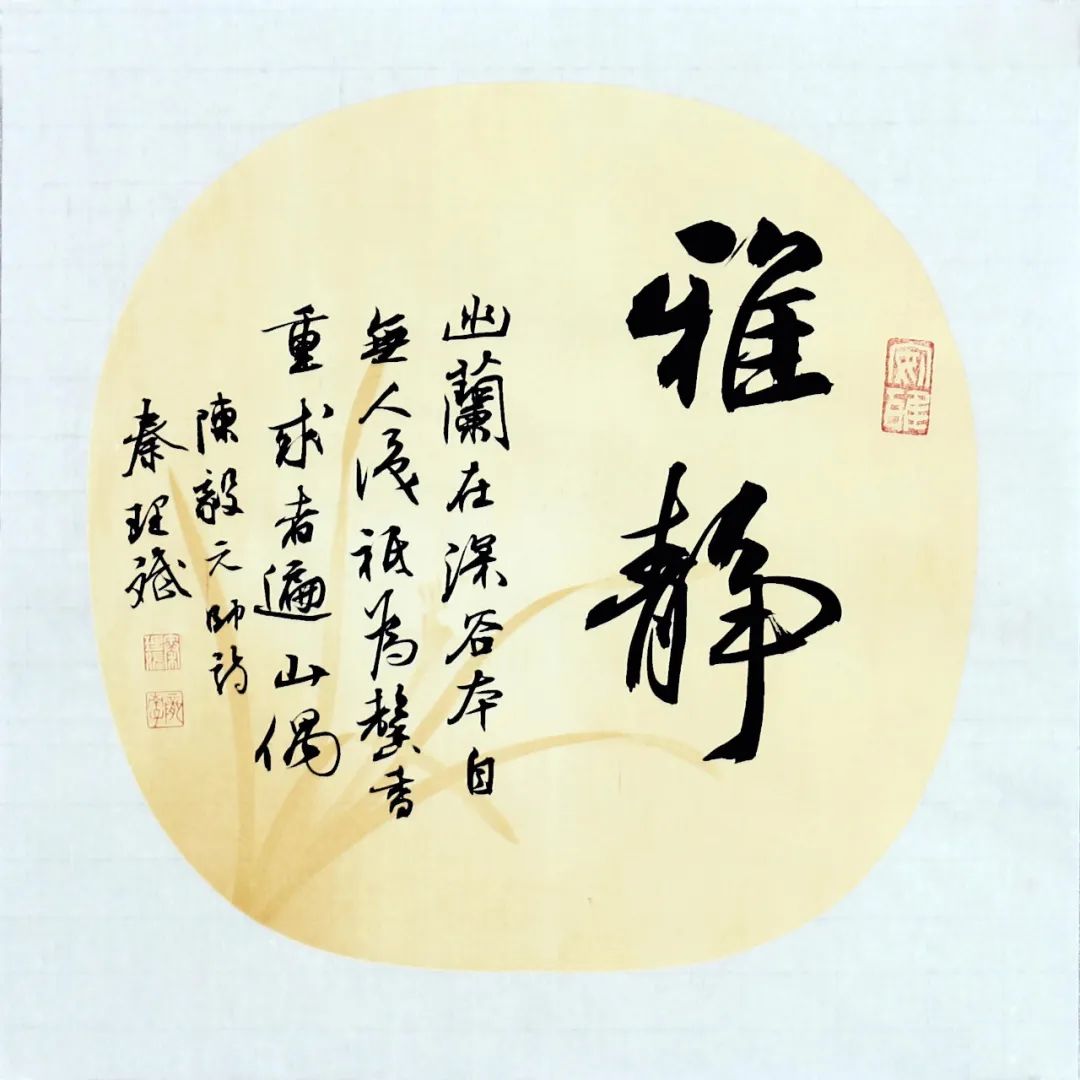 雅静
幽蘭在深谷本自
無人識祇為馨香
重求者遍山偶
陳毅元帥詩
秦理斌